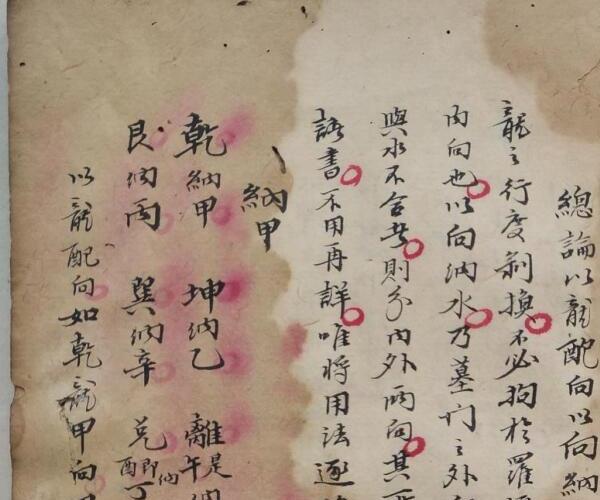 總論以龍配向以向納
龍之行度剝換不必拘於羅
內向也以向納水乃墓门之外
與水不合者則分內外兩向其
諸書不用再詳唯將用法逐
納甲
乾納甲 坤納乙 離是納
艮納丙 巽納辛 兌即納丁
以龍配向如乾龍甲向